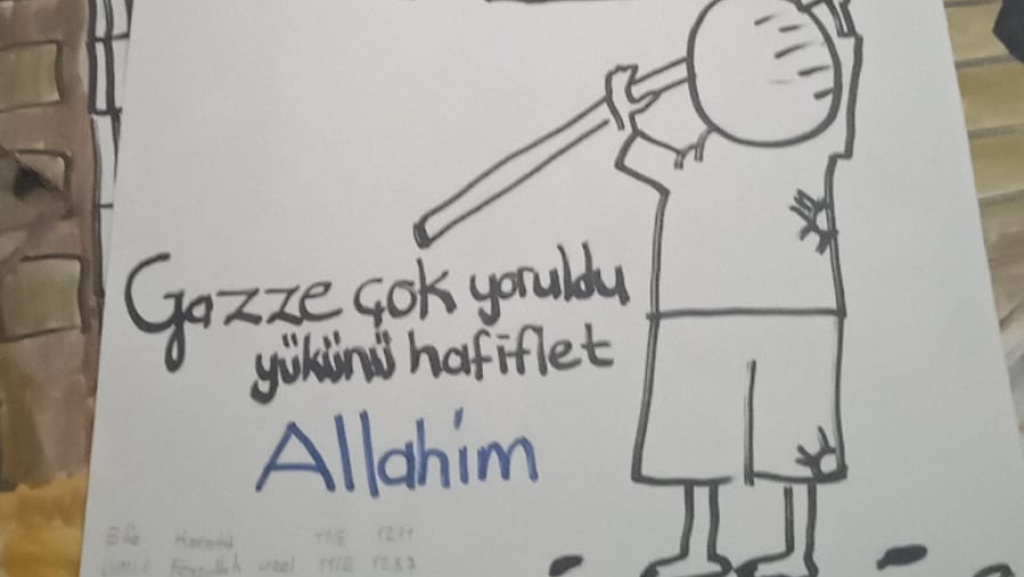 Gazze çok yoruldu
yükünü hafiflet
Allahim
11/E
11/E